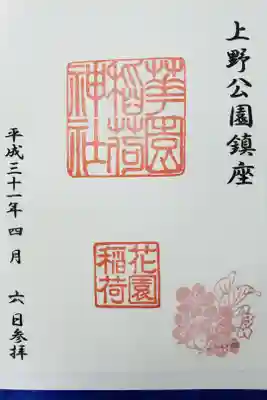 上野公園鎮座
華園稲荷神社
花園稲荷
平成三十一年四月六日参拝